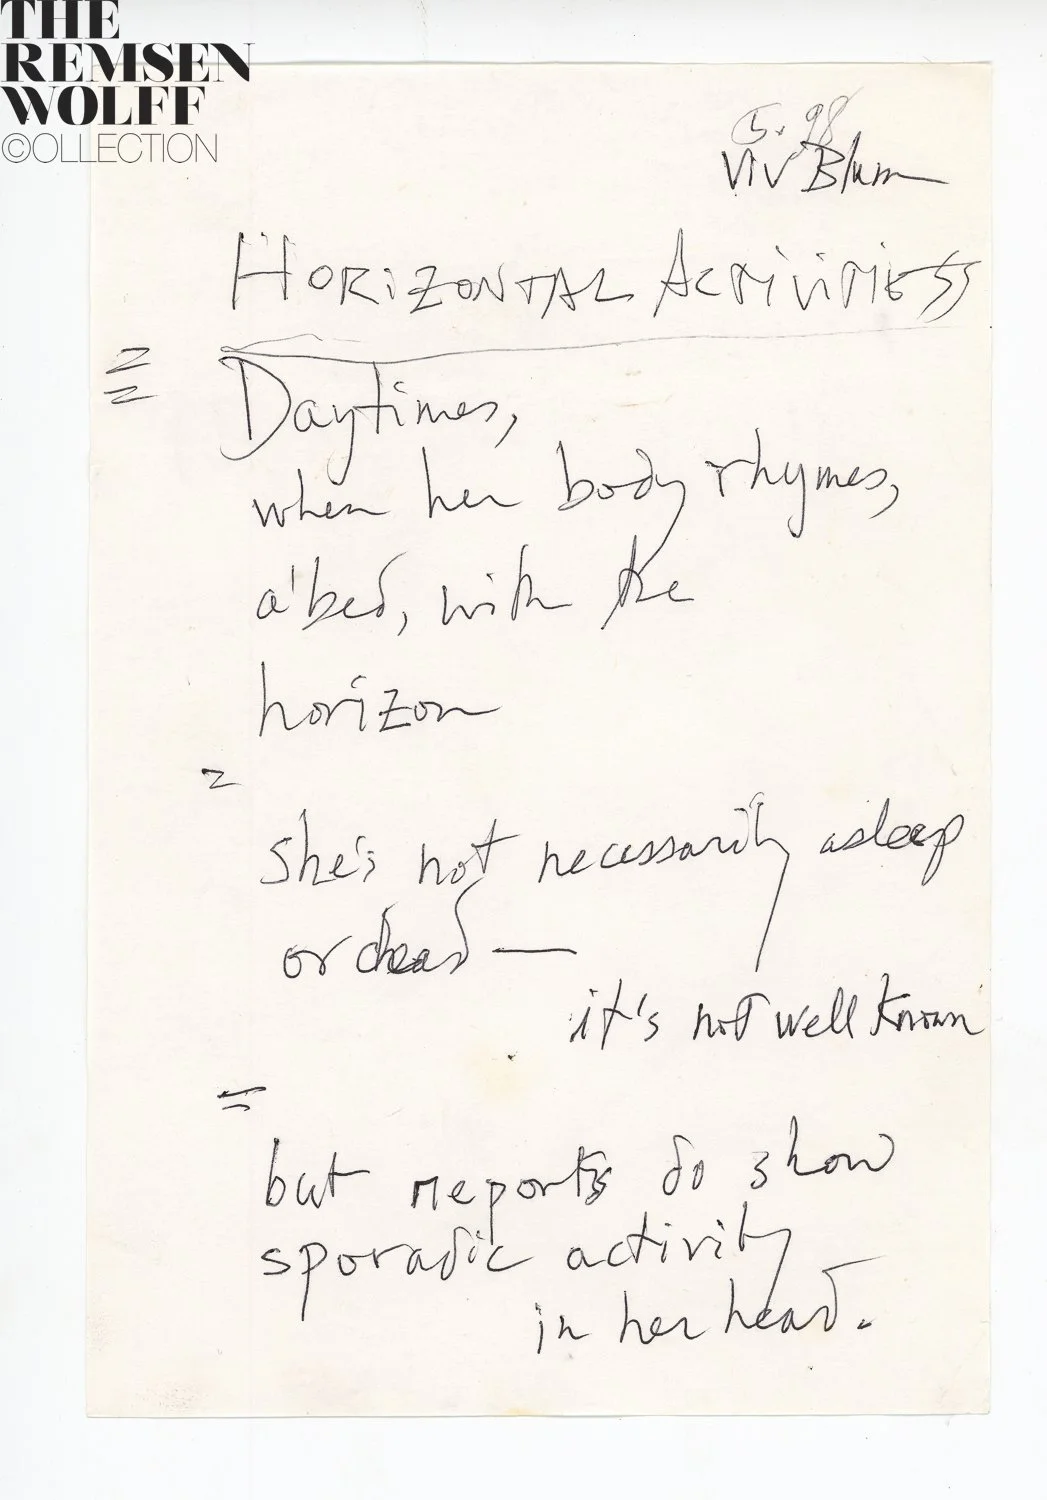 THE
REMSEN
WOLFF
©OLLECTION
5.98
Viv Blum
HORiZONTAL ACTiViTiES
=
=
Daytimes,
when her body rhymes,
a'bed, with the
horizon
=
She's not necessarily asleep
or dead —
it's not well known
=
but reports do show
sporadic activity
in her head.